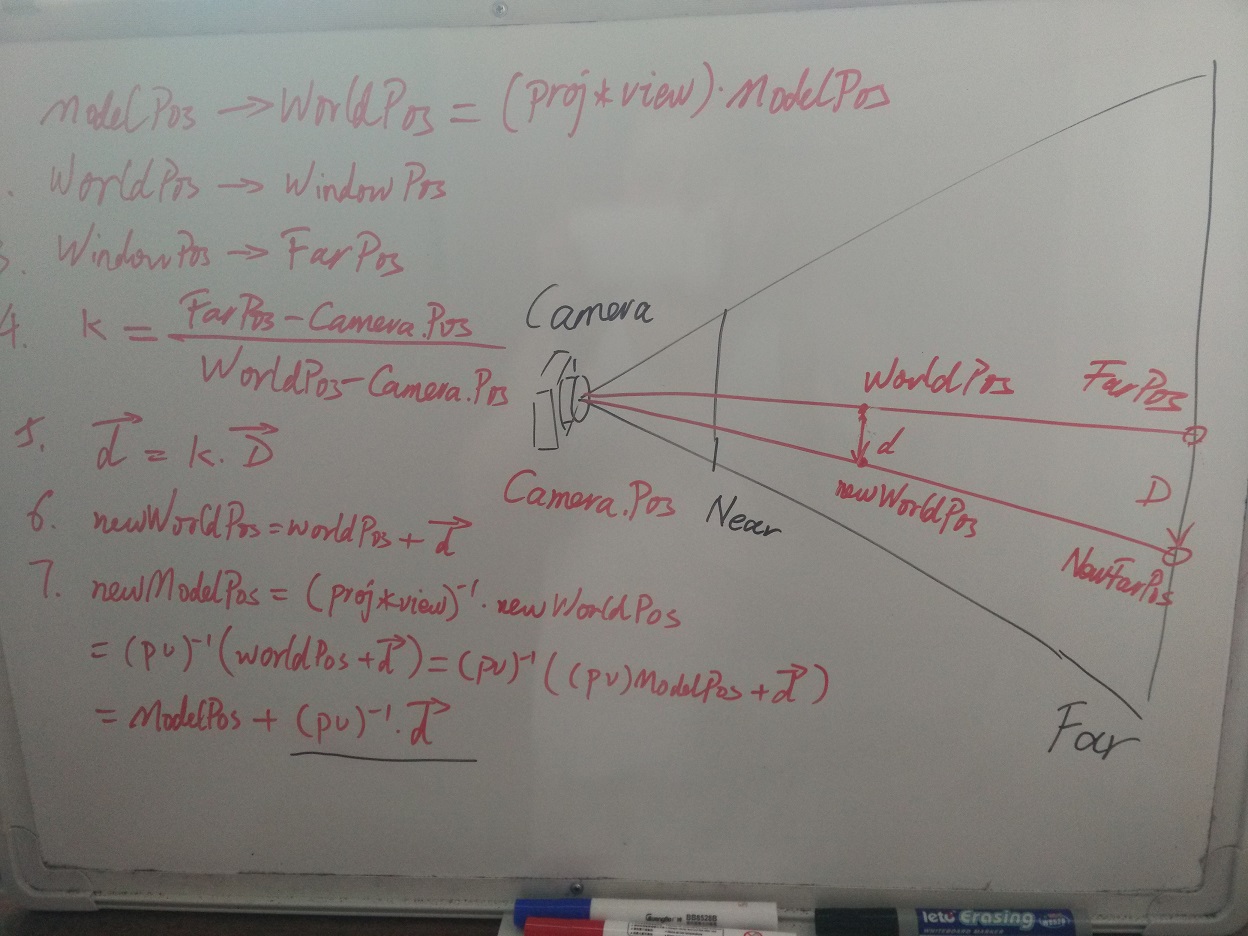 ModelPos → WorldPos = (proj*view)·ModelPos
. WorldPos → WindowPos
3. WindowPos → FarPos
4. k = FarPos-Camera.Pos
WorldPos-Camera.Pos
5. d = k. D
6. newWorldPos=worldPos+d
7. newModelPos = (proj*view)⁻¹·newWorldPos
= (pv)⁻¹(worldPos+d)=(pv)⁻¹((pv)ModelPos+d)
= ModelPos + (pv)⁻¹.d
Camera
Camera.Pos
Near
WorldPos
FarPos
d
newWorldPos
D
NewFarPos
Far
Guangbo
BB8528B
leto Erasing
WHITEBOARD MARKER